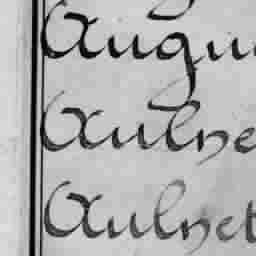 Augu
Aulne
Aulnet